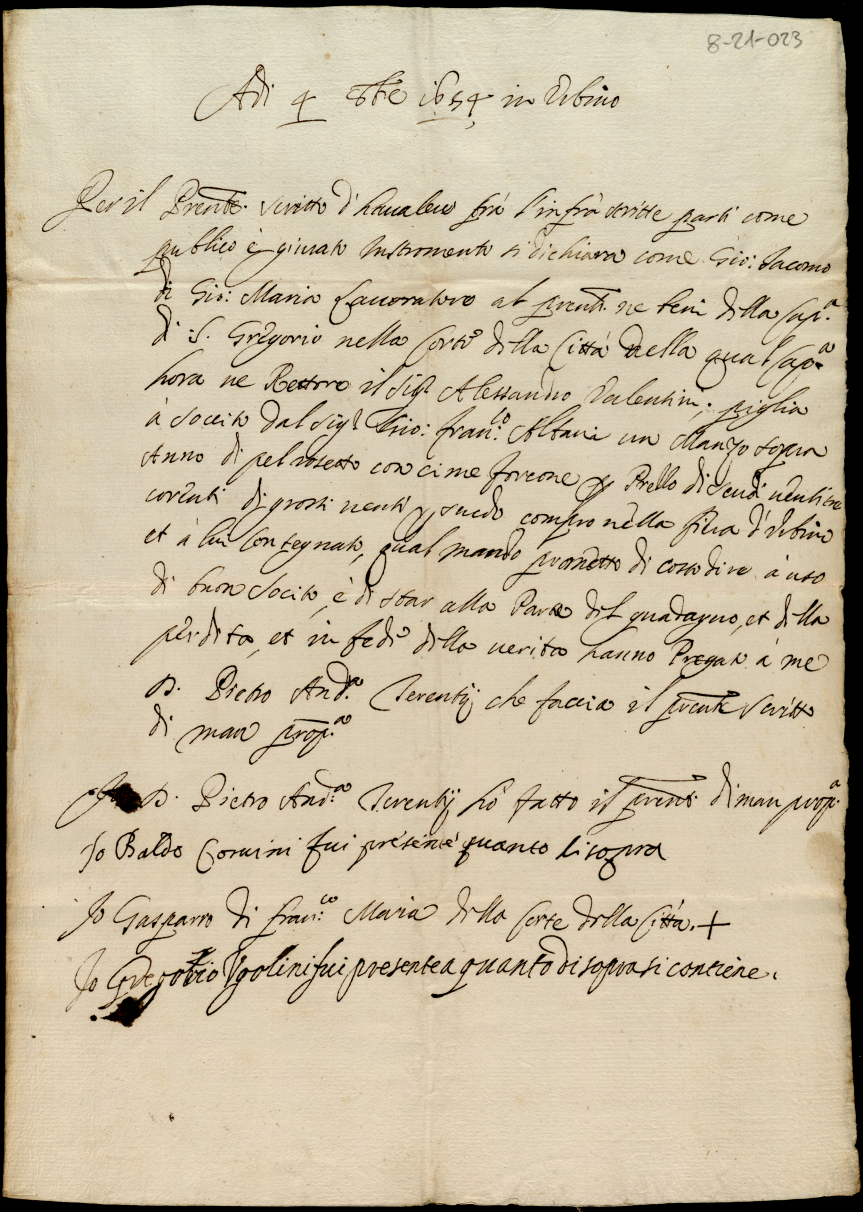 8-21-023
Adi 4 8bre 1654 in Urbino
Per il Prente. scritto d'havalere frà l'infrascritte parti come
publico è giurato Instromento si dichiara come Gio: Iacomo
di Gio: Maria Lavoratore al prente. ne beni della Cap.a
di S. Gregorio nella Corte della Città nella qual Cap.a
hora ne Rettore il Sig.r Alessandro Valentini. piglia
à Soccito dal Sig.r Gio: Fran.co Albani un Manzo sopra
Anno di pel rosetto con cime forcone p Prezzo di scudi
correnti di grossi venti p scudo compro nella fiera d'Urbino
et à lui Consegnato, qual manzo promette di costodire à uso
di buon Socito, è di star alla Parte del guadagno, et della
perdita, et in fede della verità hanno Pregato à me
D. Pietro And.a Terentij che faccia il prente scritto
di man prop.a
Io D. Pietro And.a Terentij hò fatto il prente. di man prop.a
Io Baldo Corvini fui presente quanto di sopra
Io Gasparro di Fran.co Maria della Corte della Città. +
Io Gregorio Ugolini fui presente a quanto di sopra si contiene.